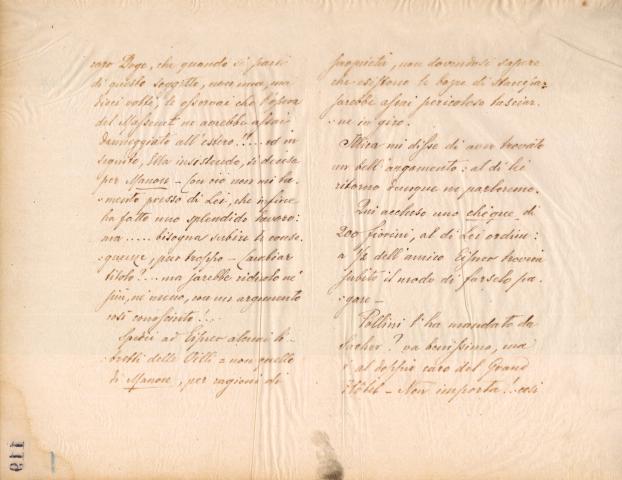 caro Doge, che quando si parlò
di questo soggetto, non una, ma
dieci volte, le osservai che l'opera
del Massenet ne avrebbe assai
danneggiato all'estero!!.... ed in
seguito, Ella insistendo, si decise
per Manon - Con ciò non mi la-
mento presso di Lei, che infine
ha fatto uno splendido lavoro:
ma ..... bisogna subire le conse-
guenze, pur troppo - Cambiar
titolo?... ma sarebbe ridicolo nè
più, nè meno, con un argomento
così conosciuto!...
Spedii ad Eisner alcuni li-
bretti delle Villi e non quello
di Manon, per ragioni di
proprietà, non dovendosi sapere
che esistono le
sarebbe assai pericoloso lasciar-
ne in giro.
Illica mi disse di aver trovato
un bell'argomento: al di Lei
ritorno dunque ne parleremo.
Qui accluso uno chèque di
200 fiorini, al di Lei ordine:
a 1/2 dell'amico Eisner troverà
subito il modo di farselo pa-
gare -
Pollini l'ha mandato da
Sacher? va benissimo, ma
è al doppio caro del Grand
Hôtel - Non importa!.. così
119